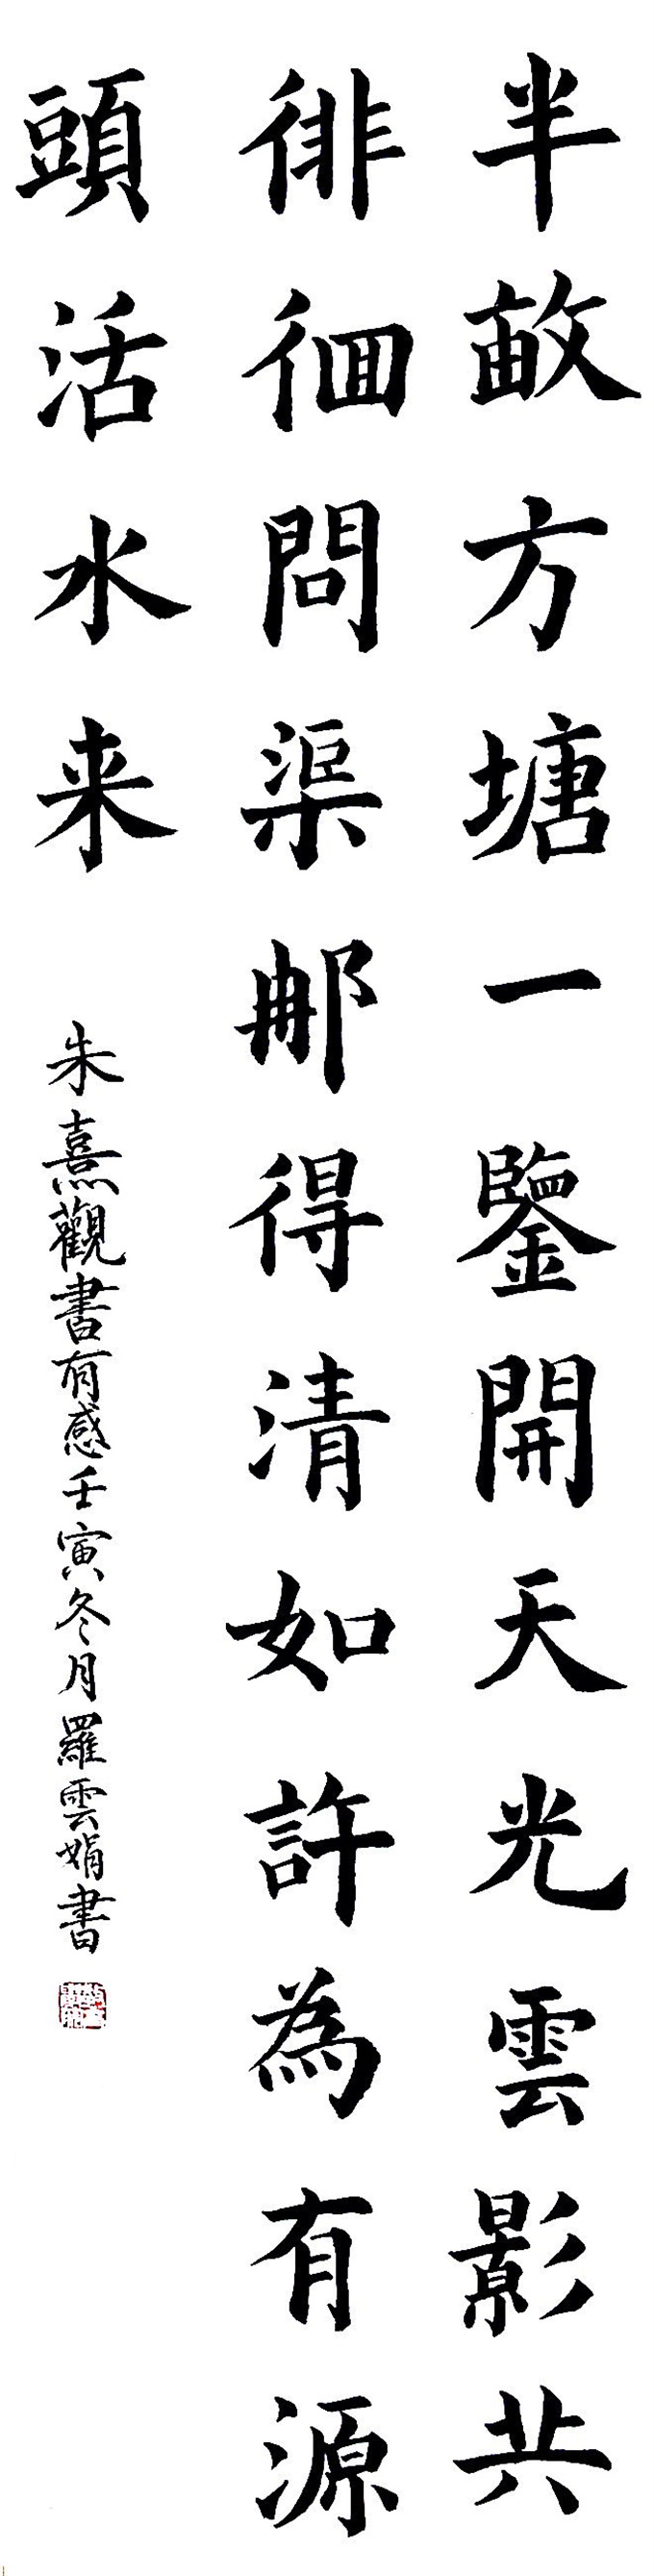 半畝方塘一鑒開天光雲影共
徘徊問渠那得清如許為有源
頭活水来
朱熹觀書有感壬寅冬月羅雲娟書